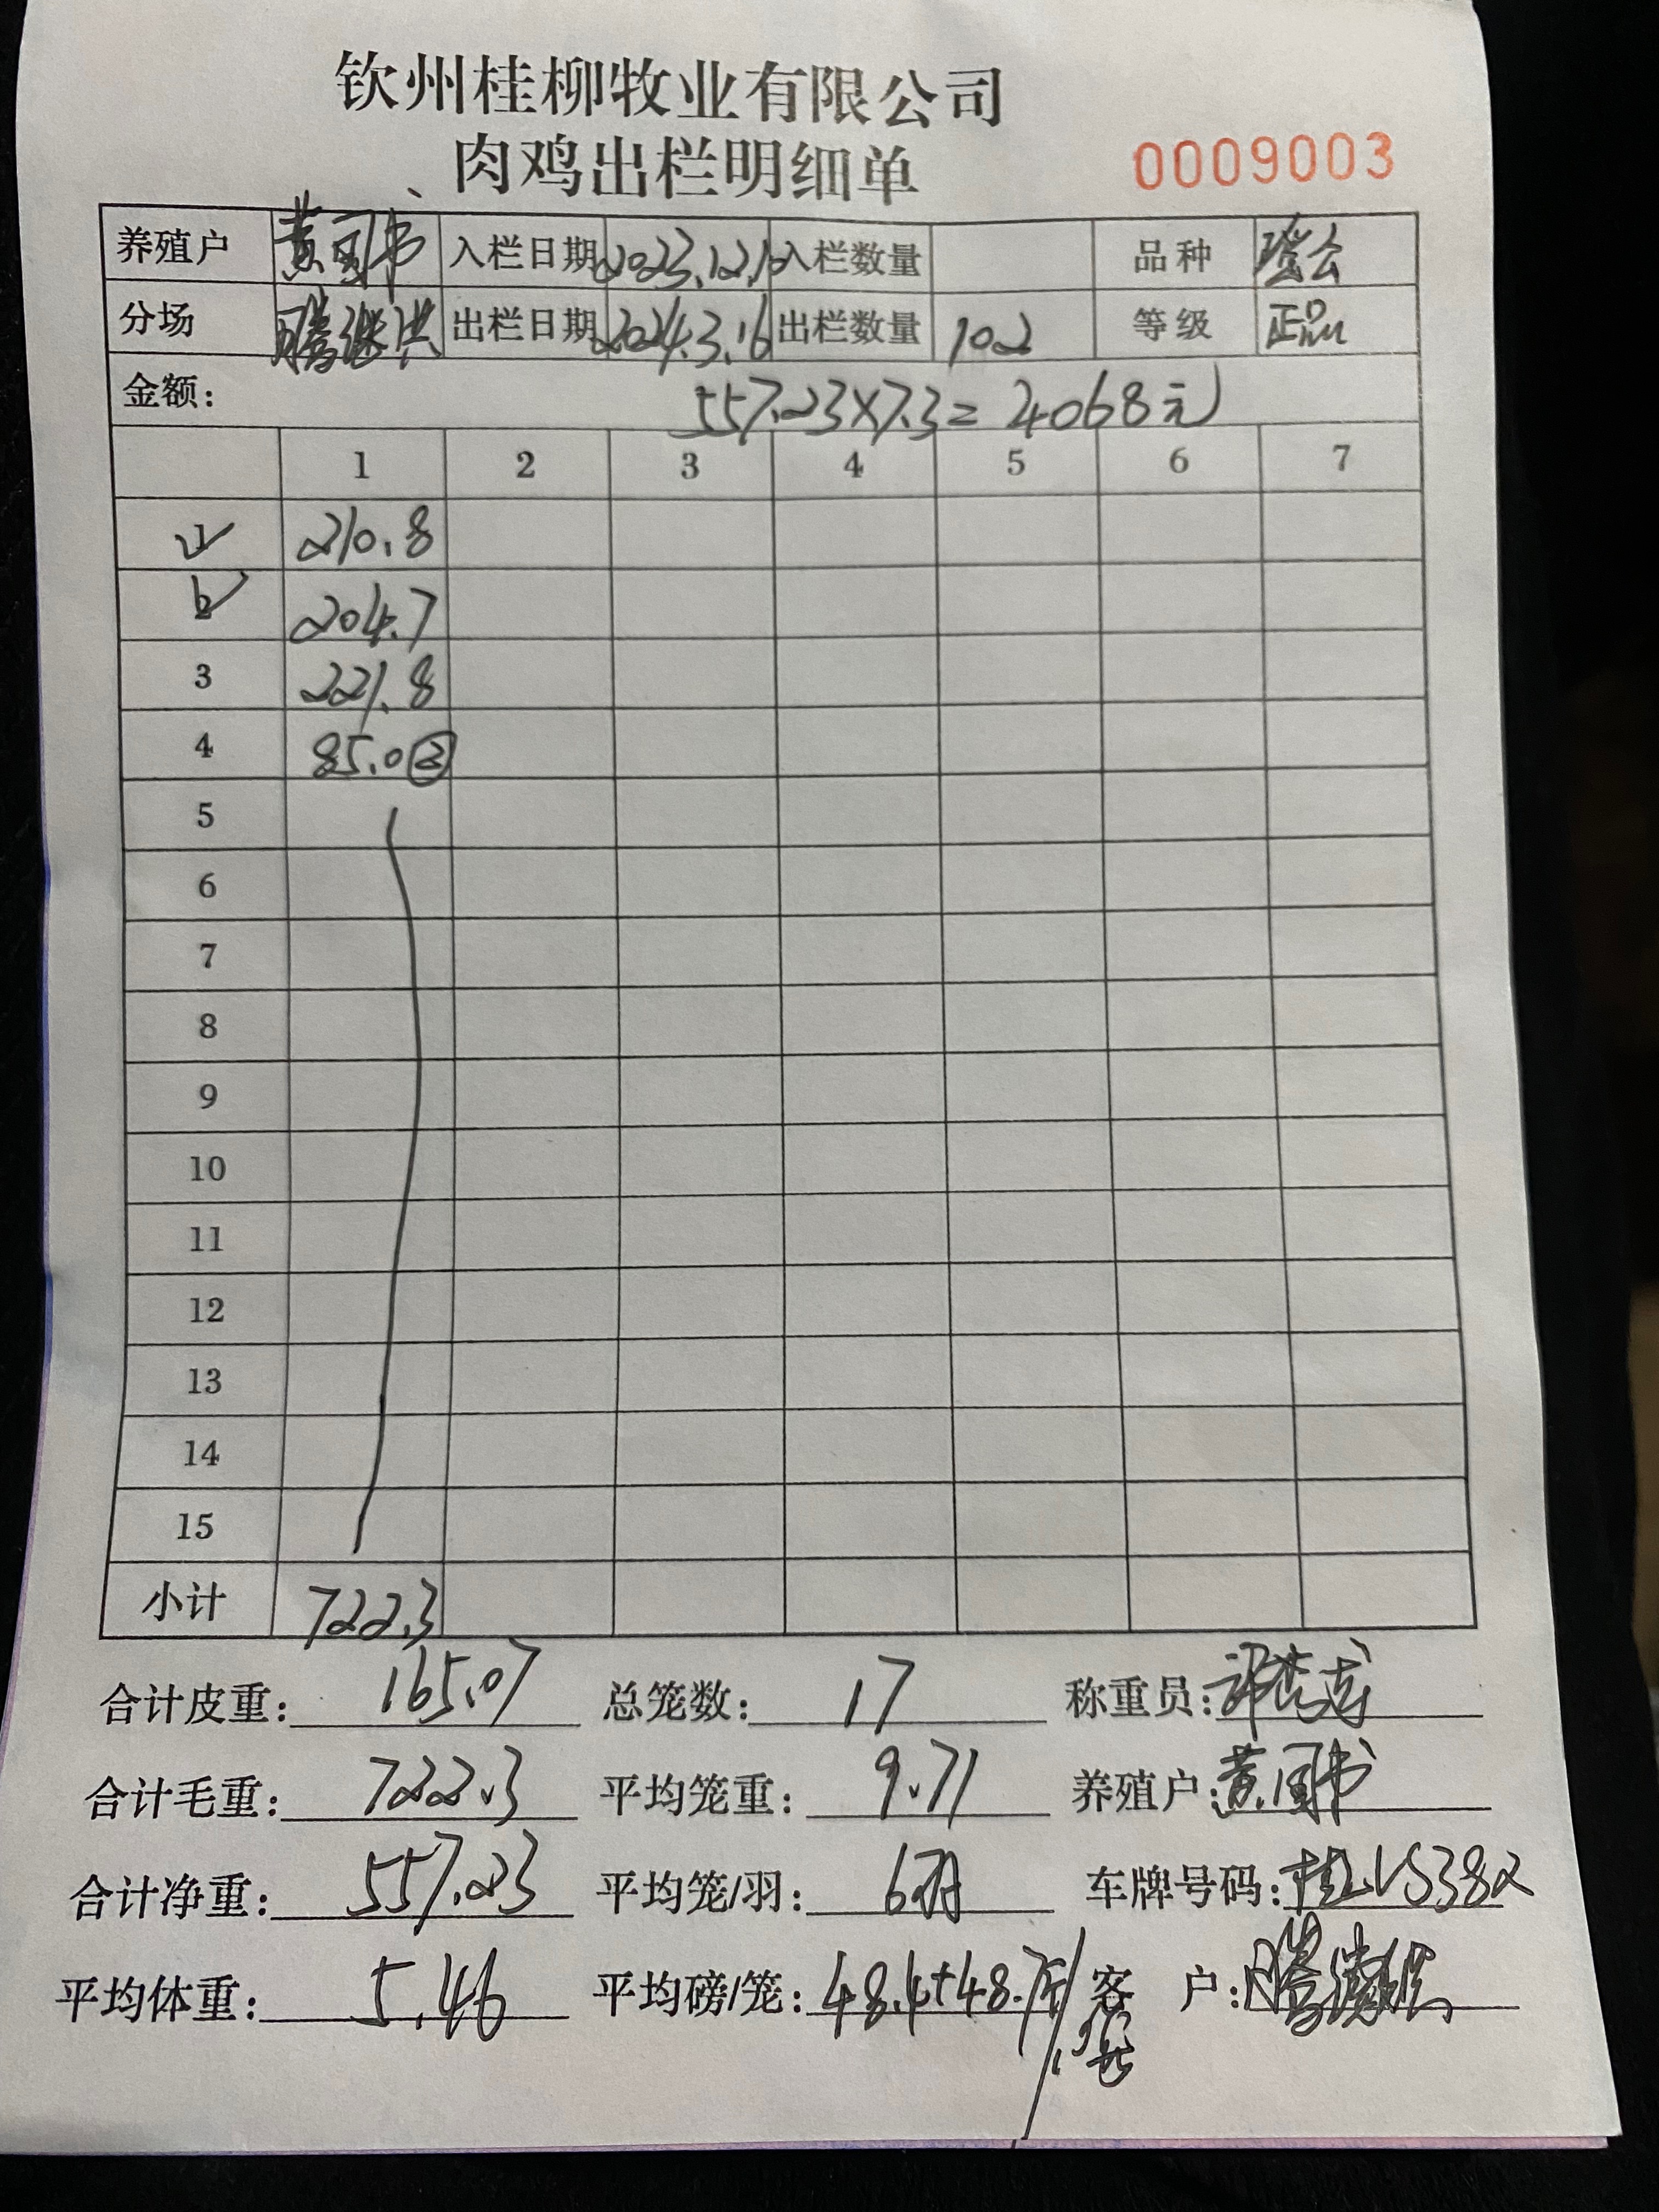 钦州桂柳牧业有限公司
肉鸡出栏明细单 0009003
养殖户 黄国书 入栏日期 2023.12.10 入栏数量 品种
分场 腾继洪 出栏日期 2024.3.16 出栏数量 102 等级 正品
金额: 557.23×7.3=4068元
1 2 3 4 5 6 7
1 210.8
2 204.7
3 221.8
4 85.0②
5
6
7
8
9
10
11
12
13
14
15
小计 722.3
合计皮重: 165.07 总笼数: 17 称重员:
合计毛重: 722.3 平均笼重: 9.71 养殖户: 黄国书
合计净重: 557.23 平均笼/羽: 6羽 车牌号码: 桂LVS382
平均体重: 5.46 平均磅/笼: 48.4+48.7斤/ 客 户: